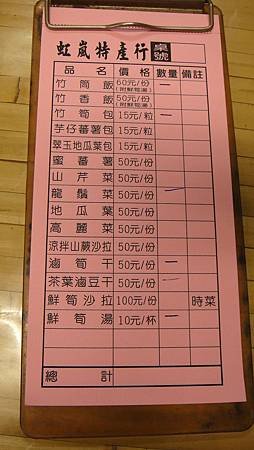 虹嵐特產行 桌號
品名 價格 數量 備註
竹筒飯 60元/份 (附鮮筍湯) 一
竹香飯 50元/份 (附鮮筍湯)
竹筍包 15元/粒 一
芋仔蕃薯包 15元/粒
翠玉地瓜葉包 15元/粒
蜜蕃薯 50元/份
山芹菜 50元/份
龍鬚菜 50元/份 一
地瓜葉 50元/份
高麗菜 50元/份
涼拌山蕨沙拉 50元/份
滷筍干 50元/份 一
茶葉滷豆干 50元/份 一
鮮筍沙拉 100元/份 時菜
鮮筍湯 10元/杯 一
總計